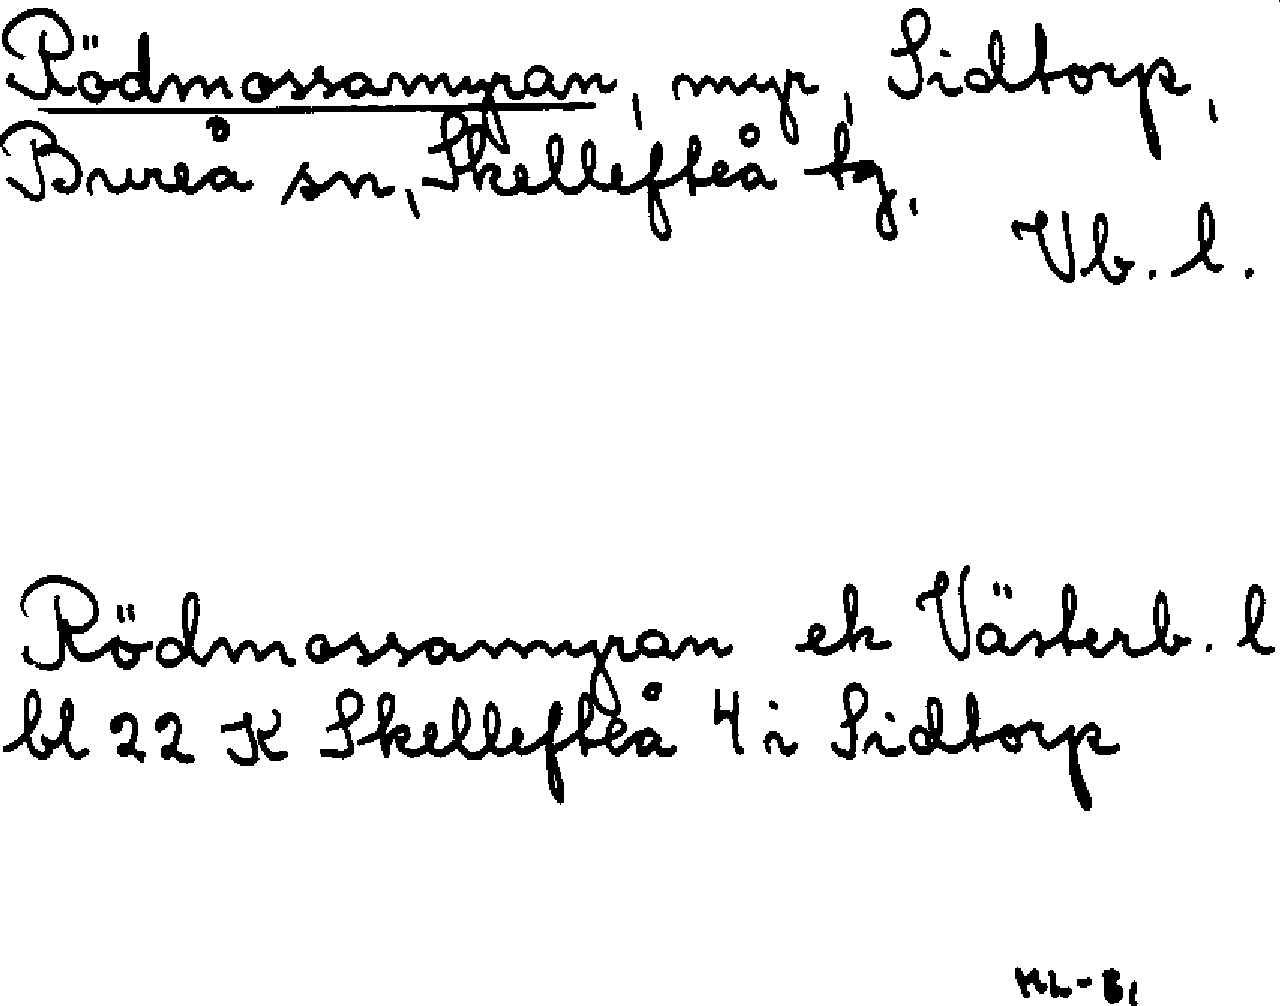 Rödmossamyran, myr, Sidtorp,
Bureå sn, Skellefteå tg,
Vb. l.
Rödmossamyran ek Västerb. l
bl 22 K Skellefteå 4 i Sidtorp